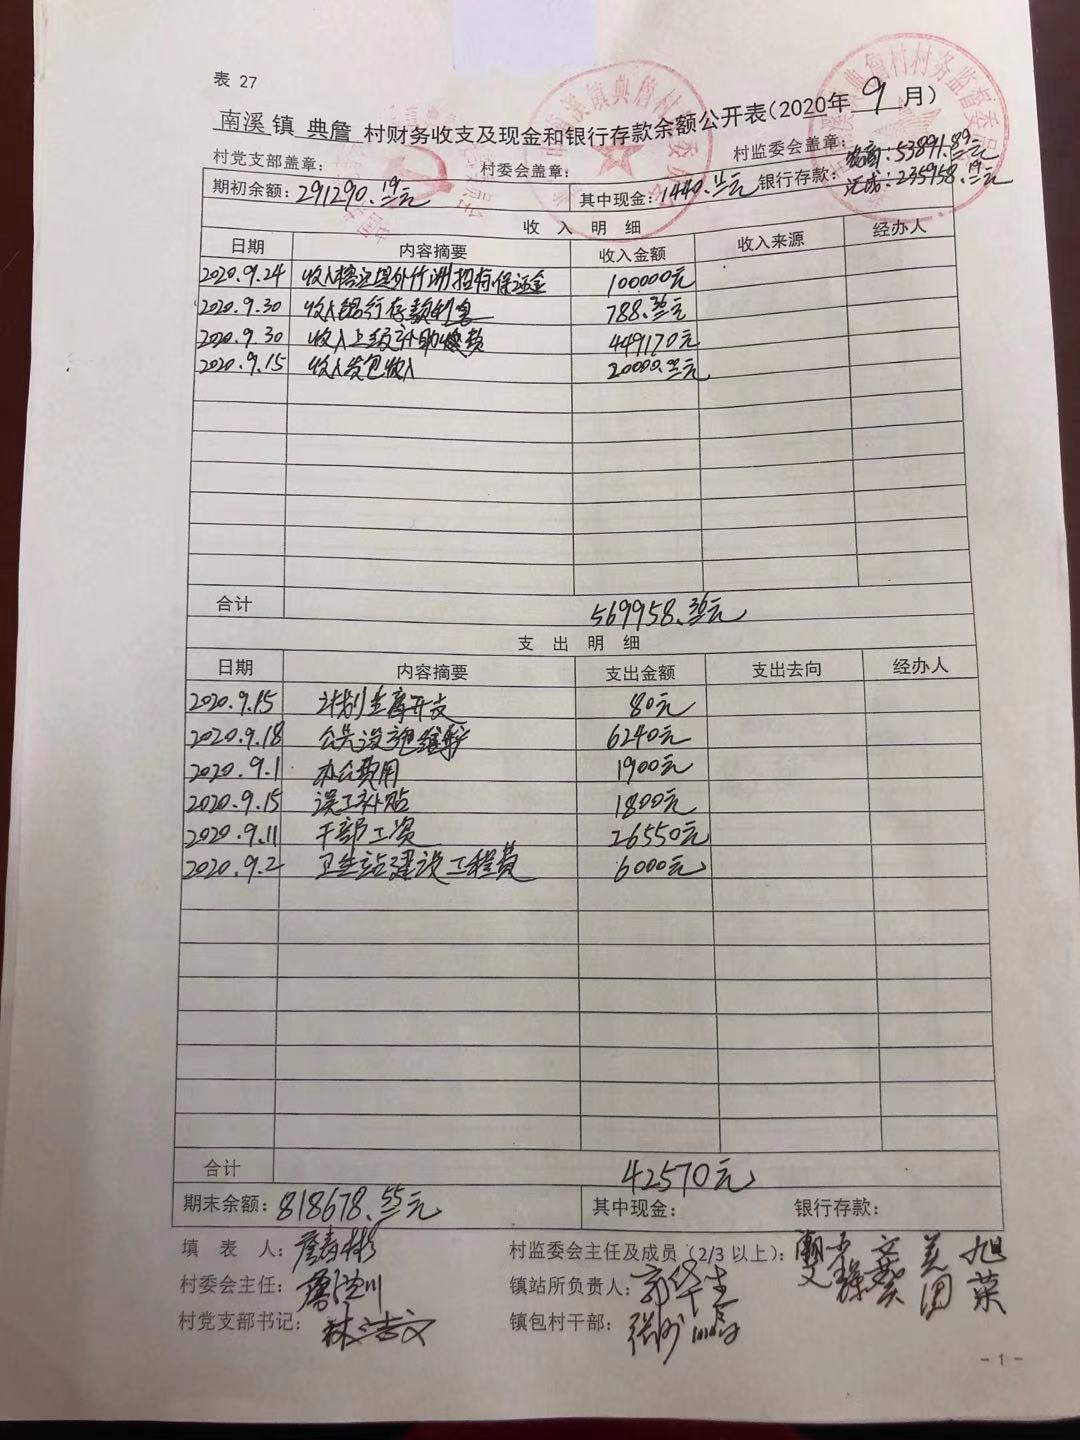 表 27
南溪 镇 典詹 村财务收支及现金和银行存款余额公开表(2020年 9 月)
村党支部盖章: 村委会盖章: 村监委会盖章:
期初余额: 291290.19元 其中现金: 1440.11元 银行存款: 农商:53891.89元 汇成:235958.19元
收 入 明 细
日期 内容摘要 收入金额 收入来源 经办人
2020.9.24 100000元
2020.9.30 收入银行存款利息 788.36元
2020.9.30 收入上级补助 449170元
2020.9.15 收入发包收入 20000.00元
合计 569958.36元
支 出 明 细
日期 内容摘要 支出金额 支出去向 经办人
2020.9.15 计划生育开支 80元
2020.9.18 公共设施维护 6240元
2020.9.1 办公费用 1900元
2020.9.15 误工补贴 1800元
2020.9.11 干部工资 26550元
2020.9.2 卫生站建设工程费 6000元
合计 42570元
期末余额: 818678.55元 其中现金: 银行存款:
填 表 人: 村监委会主任及成员(2/3 以上):
村委会主任: 镇站所负责人:
村党支部书记: 林浩文 镇包村干部:
- 1 -